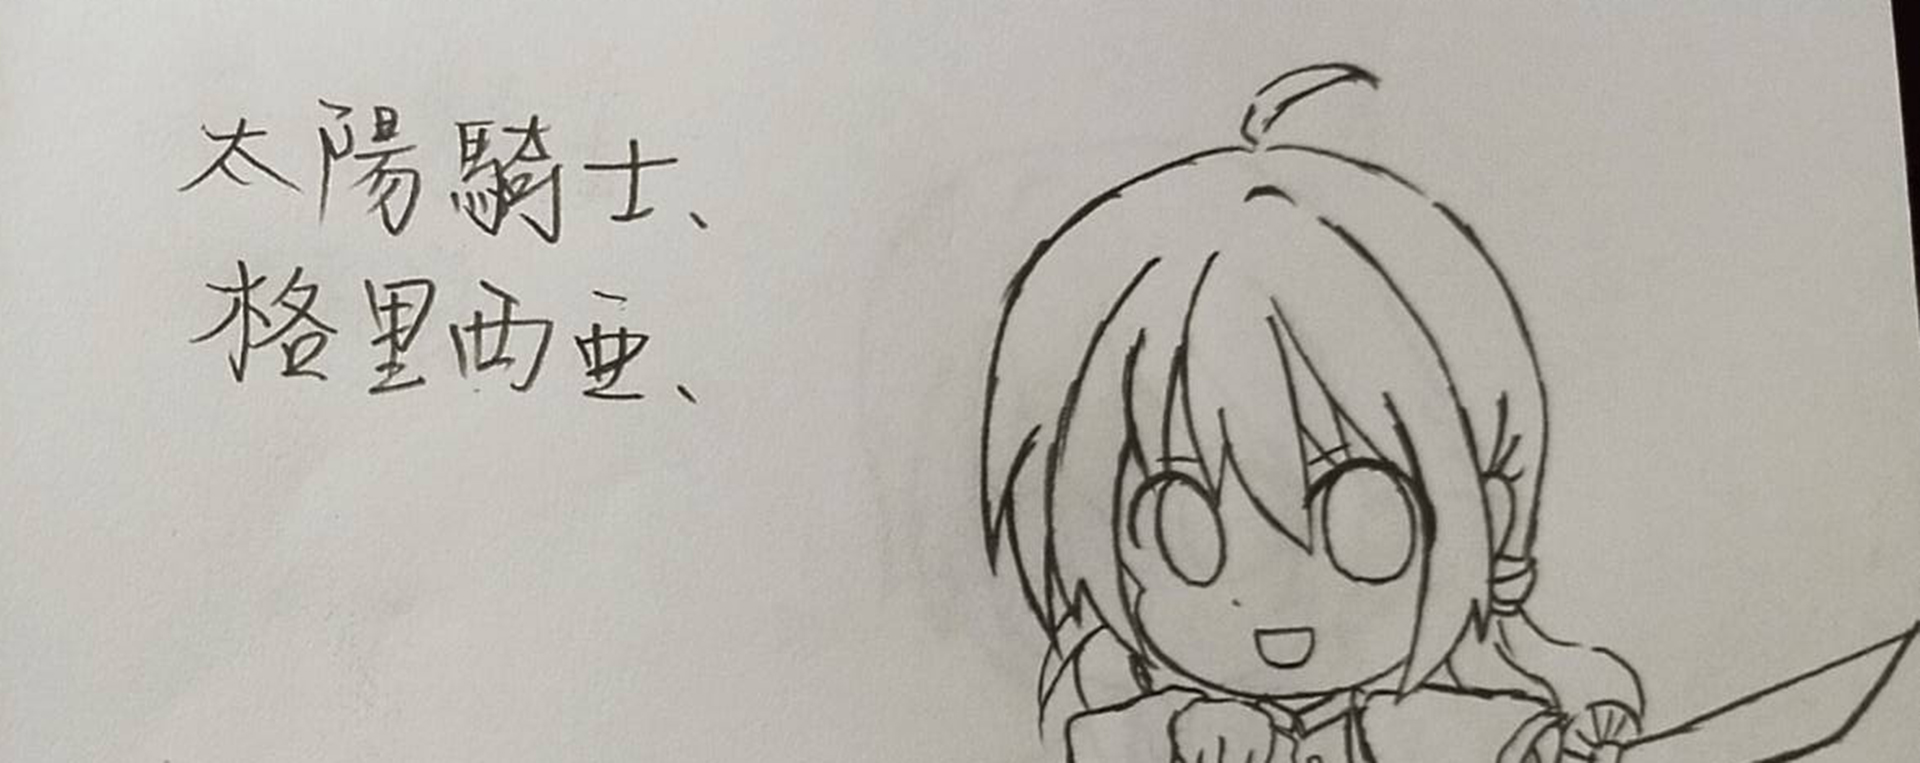 太陽騎士、
格里西亞、